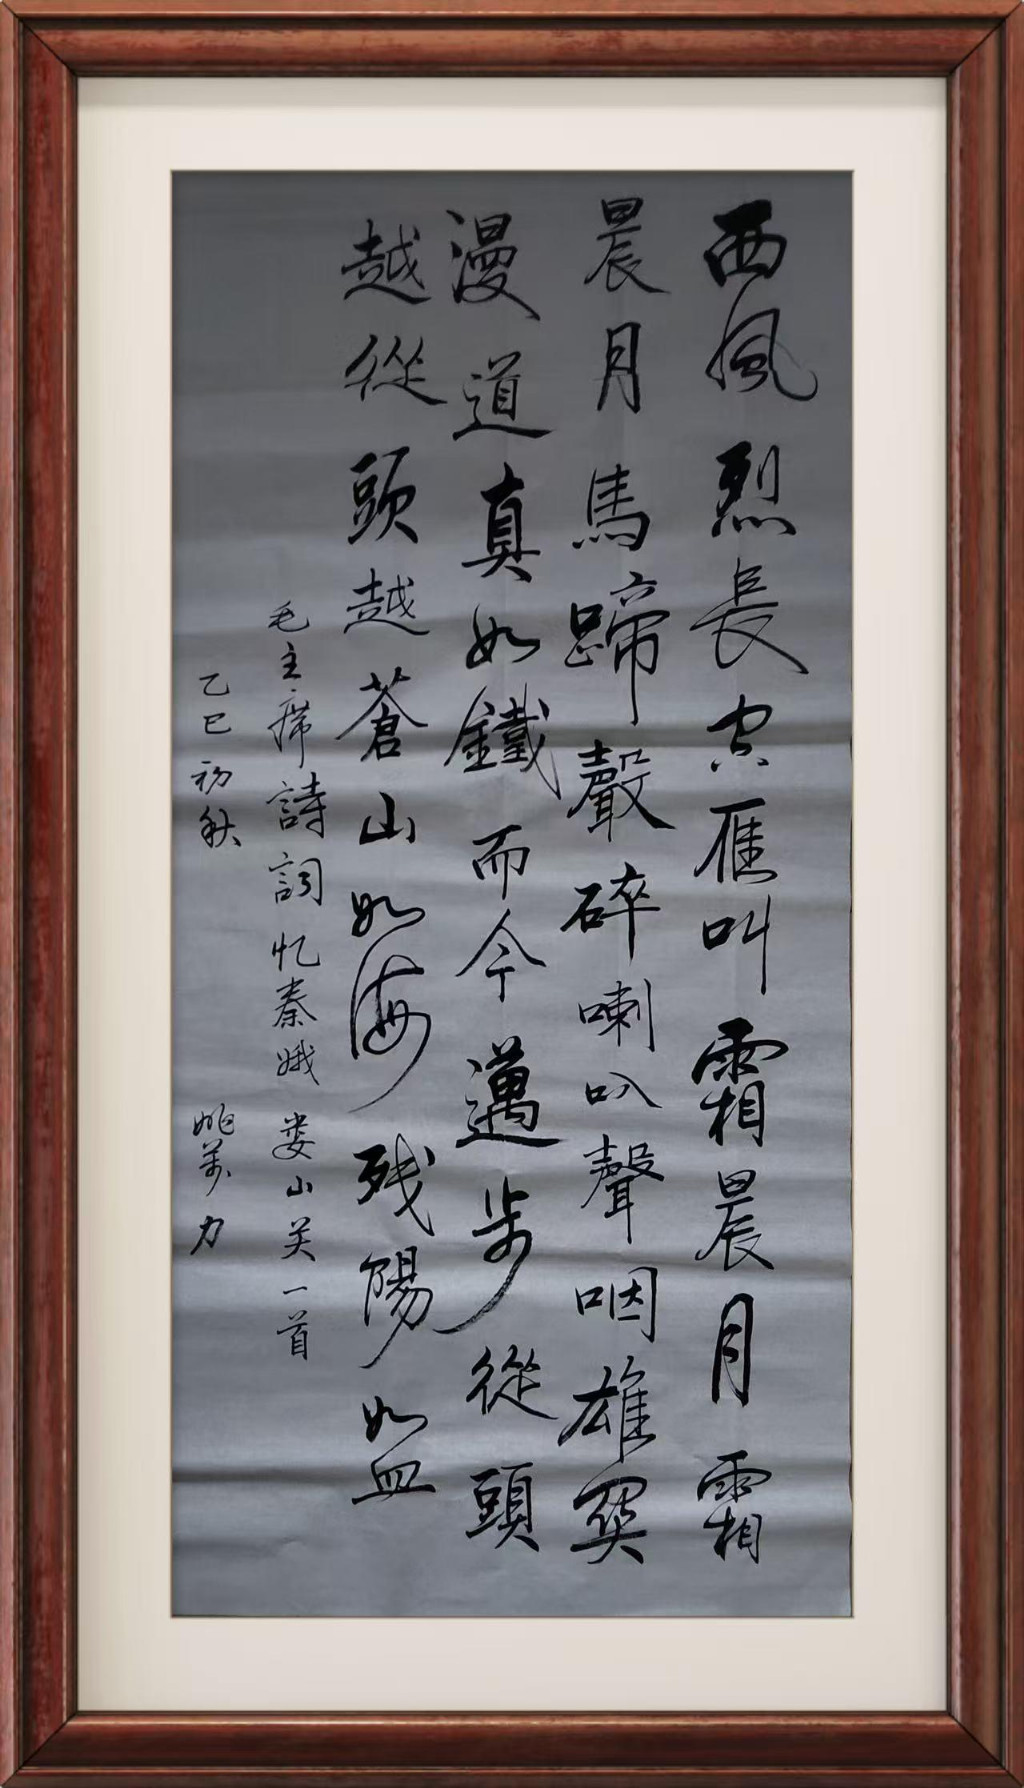 西風烈長空雁叫霜晨月霜
晨月馬蹄聲碎喇叭聲咽雄関
漫道真如鐵而今邁步從頭
越從頭越蒼山如海残陽如血
毛主席詩詞忆秦娥 娄山关一首
乙巳初秋 姚万力